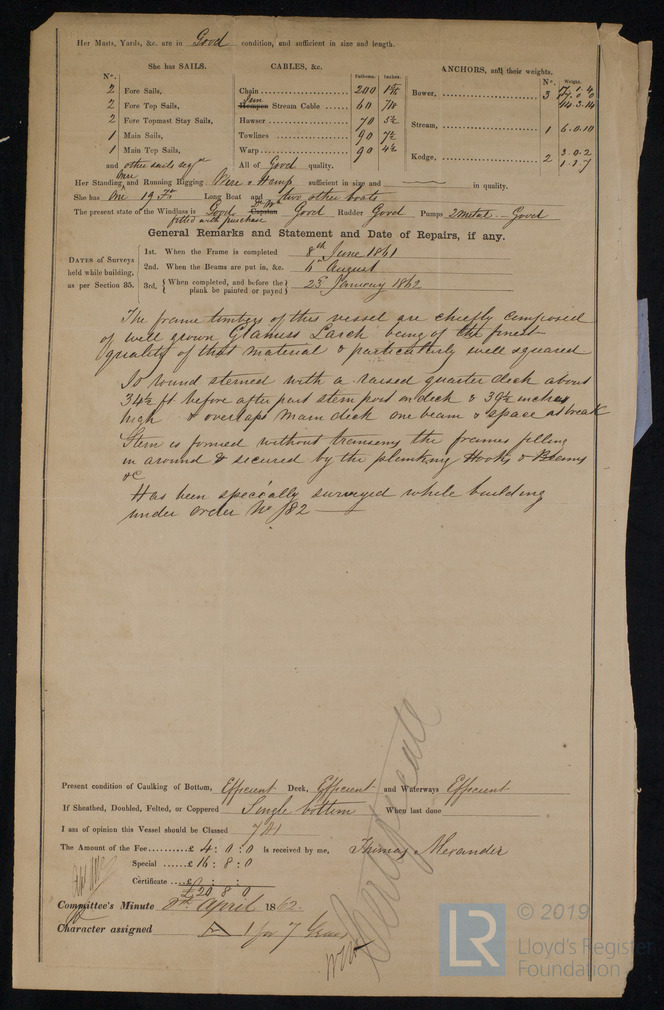 Her Masts, Yards, &c. are in Good condition, and sufficient in size and length.
She has SAILS. CABLES, &c. ANCHORS, and their weights.
No. Fathoms. Inches. No. Weight.
2 Fore Sails, Chain 200
2 Fore Top Sails, Hempen Stream Cable 60 7/8
2 Fore Topmast Stay Sails, Hawser 70 5½
1 Main Sails, Towlines 90 7½
1 Main Top Sails, Warp 90 4½
Bower, 3
14.3.14
Stream, 1 6.0.10
Kedge, 2 3.0.2
1.3.7
and other sails All of Good quality.
Her Standing and Running Rigging Wire & Hemp sufficient in size and in quality.
She has One 19 Ft Long Boat and two other boats
The present state of the Windlass is Good Capstan Good Rudder Good Pumps 2 metal Good
fitted with purchase
General Remarks and Statement and Date of Repairs, if any.
DATES of Surveys held while building, as per Section 35.
1st. When the Frame is completed 8th June 1861
2nd. When the Beams are put in, &c. 6th August
3rd. { When completed, and before the plank be painted or payed } 23d January 1862
The frame timbers of this vessel are chiefly composed
of well grown Glamiss Larch being of the finest
quality of that material & particularly well squared
Is round sterned with a raised quarter deck about
34½ ft before after part stern post on deck & 39½ inches
high & overlaps main deck one beam & space at break
Stern is formed without transoms the frames filling
in around & secured by the planking Hooks & Beams
&c
Has been specially surveyed while building
under order No 182
Present condition of Caulking of Bottom, Efficient Deck, Efficient and Waterways Efficient
If Sheathed, Doubled, Felted, or Coppered Single bottom When last done
I am of opinion this Vessel should be Classed 7 A1
The Amount of the Fee......£ 4 : 0 : 0 is received by me, Thomas Alexander
Special ......£ 16 : 8 : 0
Certificate ....£ : :
£ 20 8 0
Committee's Minute 8th April 1862.
Character assigned A 1 for 7 Years
Certificate
LR © 2019
Lloyd's Register
Foundation